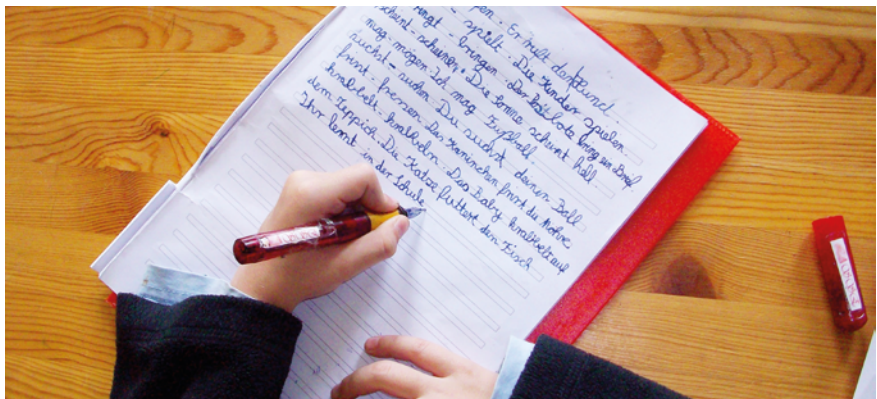 pen. Er hilft dem Hund.
spielt. Die Kinder spielen.
ingt - bringen. Der Postbote bring ein Brief
scheint - scheinen. Die Sonne scheint hell.
mag - mögen. Ich mag Fußball.
suchst - suchen. Du suchst deinen Ball
frisst. fressen. Das Kaninchen frisst di Möhre
krabbelt - krabbeln. Das Baby krabbelt auf
dem Teppich. Die Katze futtert den Fisch
Ihr lernt in der Schule